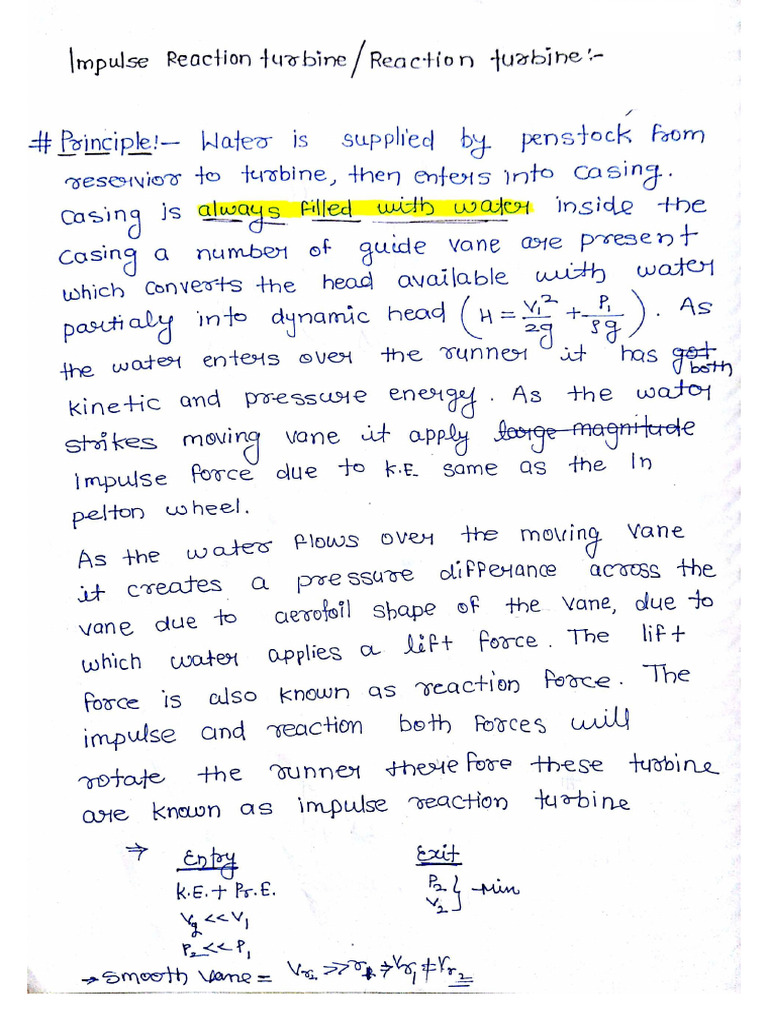 Impulse Reaction turbine/Reaction turbine:-
# Principle:- Water is supplied by penstock from
reservior to turbine, then enters into casing.
Casing is always filled with water inside the
casing a number of guide vane are present
which converts the head available with water
partialy into dynamic head (H = V₁²/2g + P₁/ρg). As
the water enters over the runner it has got both
kinetic and pressure energy. As the water
strikes moving vane it apply large magnitude
impulse force due to K.E. same as the In
pelton wheel.
As the water flows over the moving vane
it creates a pressure differance across the
vane due to aerofoil shape of the vane, due to
which water applies a lift force. The lift
force is also known as reaction force. The
impulse and reaction both forces will
rotate the runner therefore these turbine
are known as impulse reaction turbine
⇒ Entry Exit
K.E. + Pr.E. P₂ } Min
V₂ << V₁ V₂
P₂ << P₁
→ Smooth Vane = Vr₂ >> ⇒ Vr₁ ≠ Vr₂